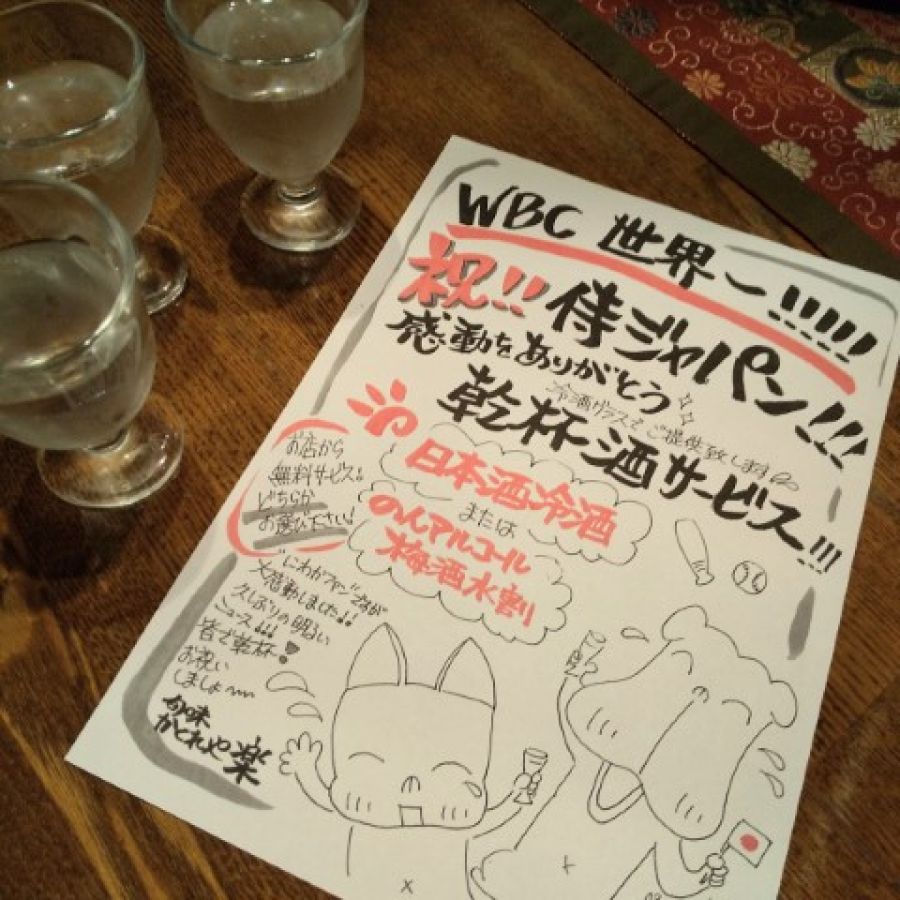 WBC 世界一!!!!!
祝!! 侍ジャパン!!!
感動をありがとう
冷酒グラスでご提供致します
乾杯酒サービス!!!
日本酒冷酒
または
のんアルコール
梅酒水割
お店から
無料サービス!!
どちらか
お選び下さい!
"にわかファン"ですが
大感動しました!!
久しぶりの明るい
ニュース!!!
皆で乾杯!
お祝い
しましょ〜
旬味
かどれや楽